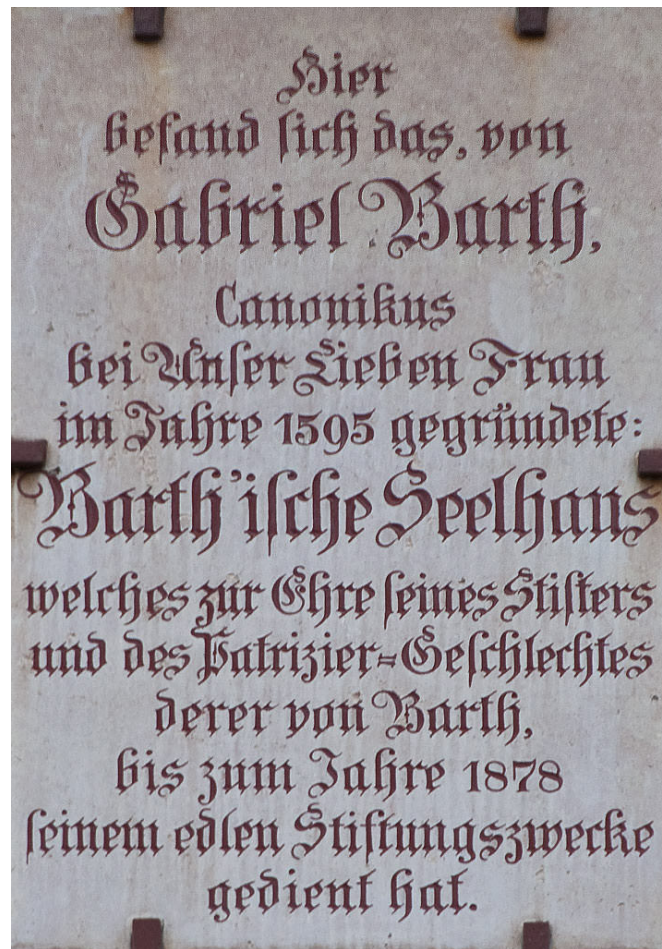 Hier
befand sich das, von
Gabriel Barth,
Canonikus
bei Unser Lieben Frau
im Jahre 1595 gegründete:
Barth'ische Seelhaus
welches zur Ehre seines Stifters
und des Patrizier=Geschlechtes
derer von Barth,
bis zum Jahre 1878
seinem edlen Stiftungszwecke
gedient hat.